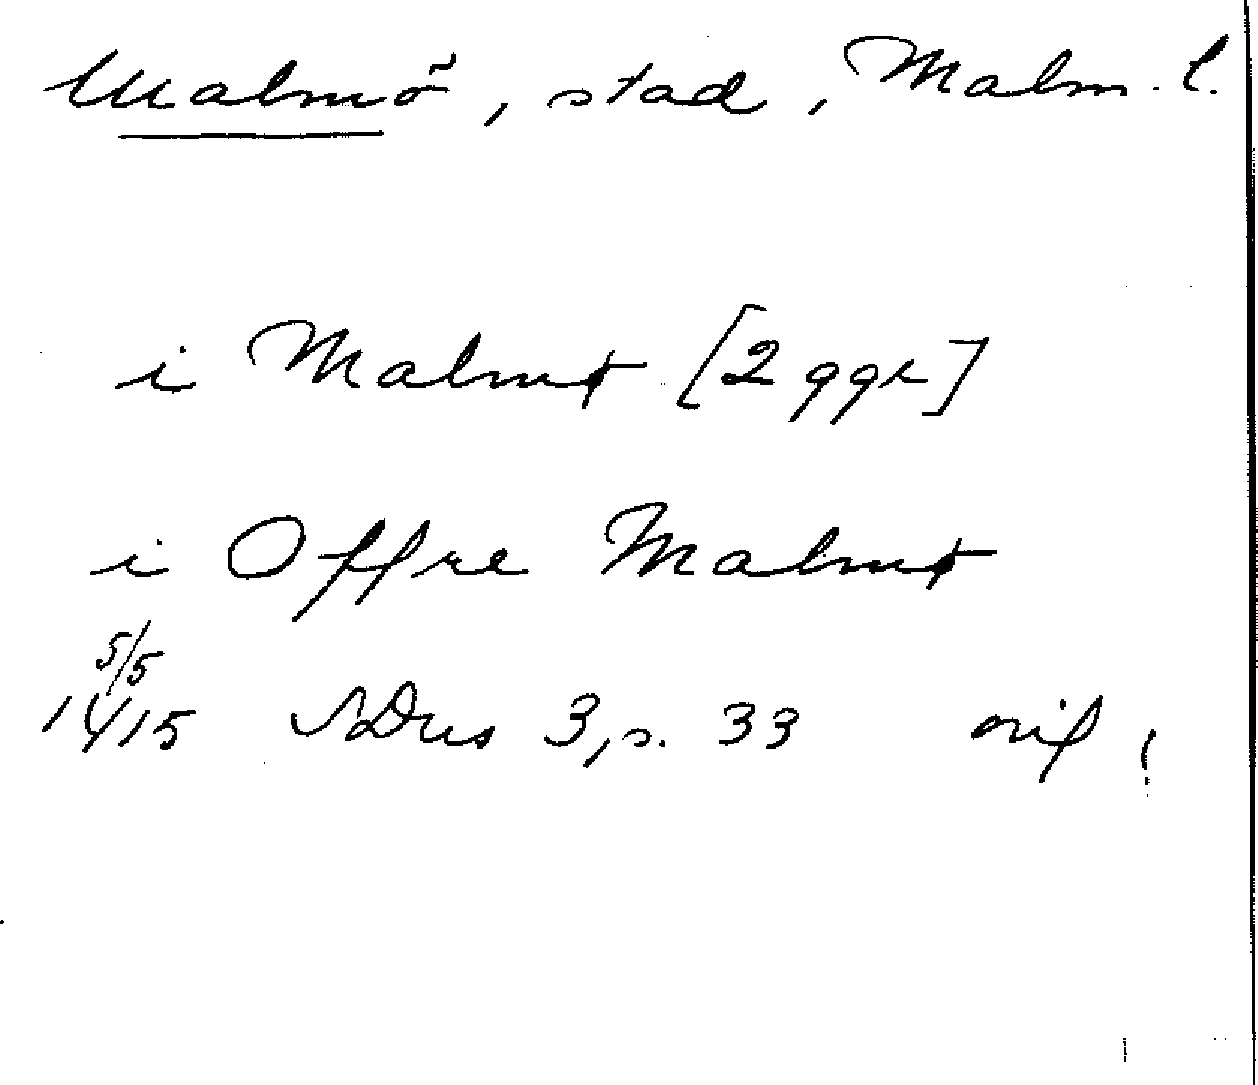 Malmö, stad, Malm. l.
i Malmø [2 ggr]
i Offre Malmø
5/5
1415 SDns 3, s. 33 orig